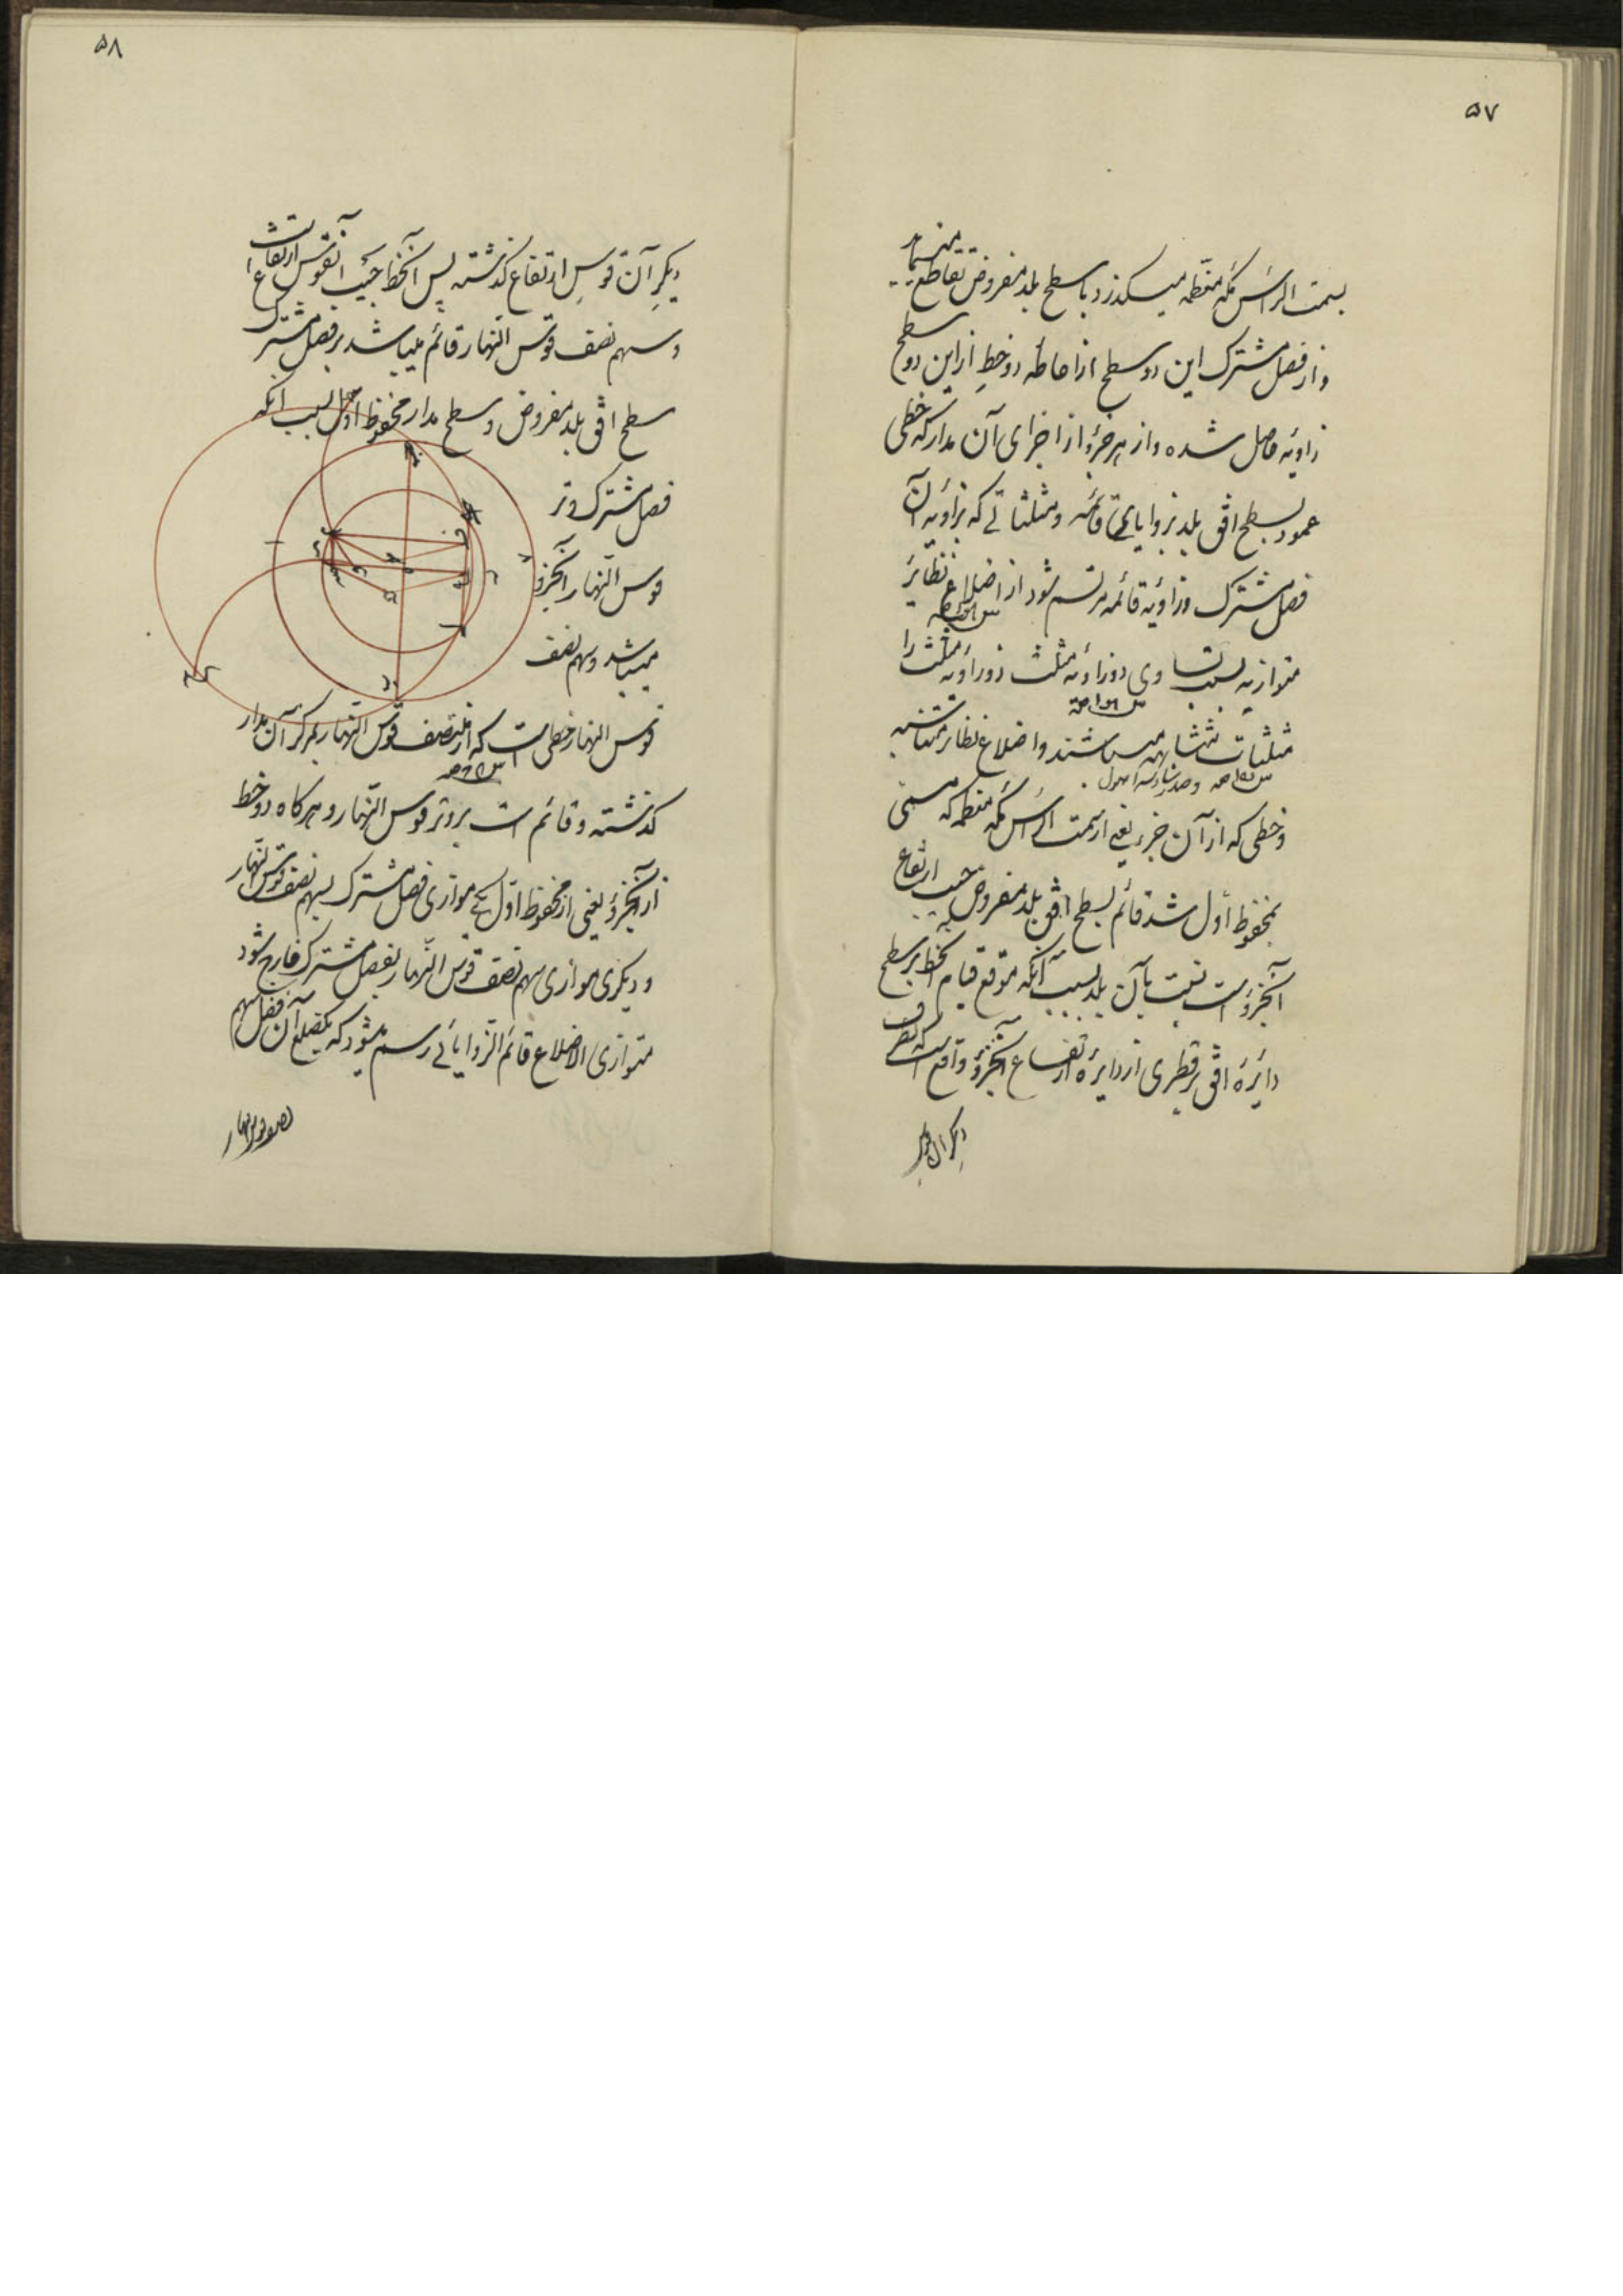 ۵۷
بسمت الرأس مکه معظمه میکذرد با سطح بلد مفروض تقاطع مینماید
و از فصل مشترک این دو سطح از احاطه دو خط از این دو سطح
زاویه حاصل شده و از هر جزؤ از اجزای آن مدار که خطی
عمود بسطح افق بلد بزوایای قائمه و مثلثاتی که بزاویه آن
فصل مشترک و زاویه قائمه مرتسم شود از اضلاع نظائر
متوازیه بسبب تساوی دو زاویه مثلث دو زاویه مثلث را
مثلثات متشابهه میباشند و اضلاع نظائر متناسبه
و خطی که از آن جزء یعنی از سمت الرأس مکه معظمه که مسمی
بمحفوظ اول شد قائم بسطح افق بلد مفروض جیب ارتفاع
آنجزؤ است نسبت بآن بلد بسبب آنکه موقع قیام آنخط بر سطح
دائرۀ افق بر قطری از دایرۀ ارتفاع آنجزؤ واقع است که بطرف
دیکر آن قوس
۵۸
دیکر آن قوس ارتفاع کذشته پس آنخط جیب آنقوس ارتفاع است
و سهم نصف قوس النهار قائم میباشد بر فصل مشترک
سطح افق بلد مفروض و سطح مدار محفوظ اول بسبب انکه
فصل مشترک وتر
قوس النهار آنجزؤ
میباشد و سهم نصف
قوس النهار خطی است که از منتصف قوس النهار بمرکز آن مدار
کذشته و قائم است بر وتر قوس النهار و هرکاه دو خط
از آنجزؤ یعنی از محفوظ اول یکی موازی فصل مشترک بسهم نصف قوس النهار
و دیکری موازی سهم نصف قوس النهار بفصل مشترک خارج شود
متوازی الاضلاع قائم الزوایائی رسم میشود که یکضلع آن فضل سهم
نصف قوس النهار